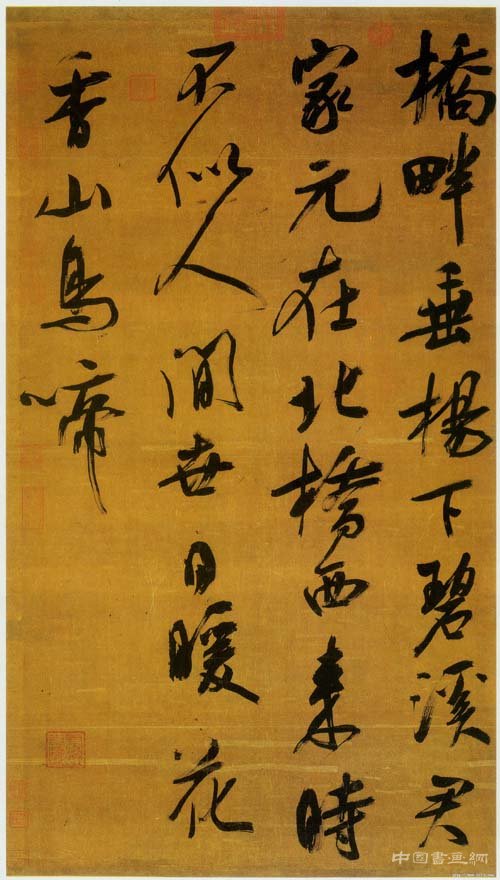 橋畔垂楊下碧溪君
家元在北橋西來時
不似人間世日暖花
香山鳥啼
中国書画網